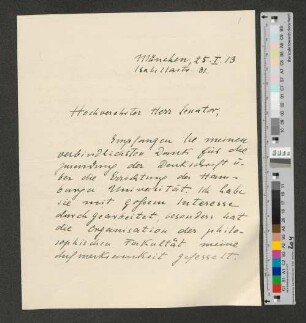 1
München, 25. I. 13
Isabellastr. 31.
Hochverehrter Herr Senator,
Empfangen Sie meinen
verbindlichsten Dank für die
Zusendung der Denkschrift ü-
ber die Errichtung der Ham-
burger Universität. Ich habe
sie mit großem Interesse
durchgearbeitet, besonders hat
die Organisation der philo-
sophischen Fakultät meine
Aufmerksamkeit gefesselt.